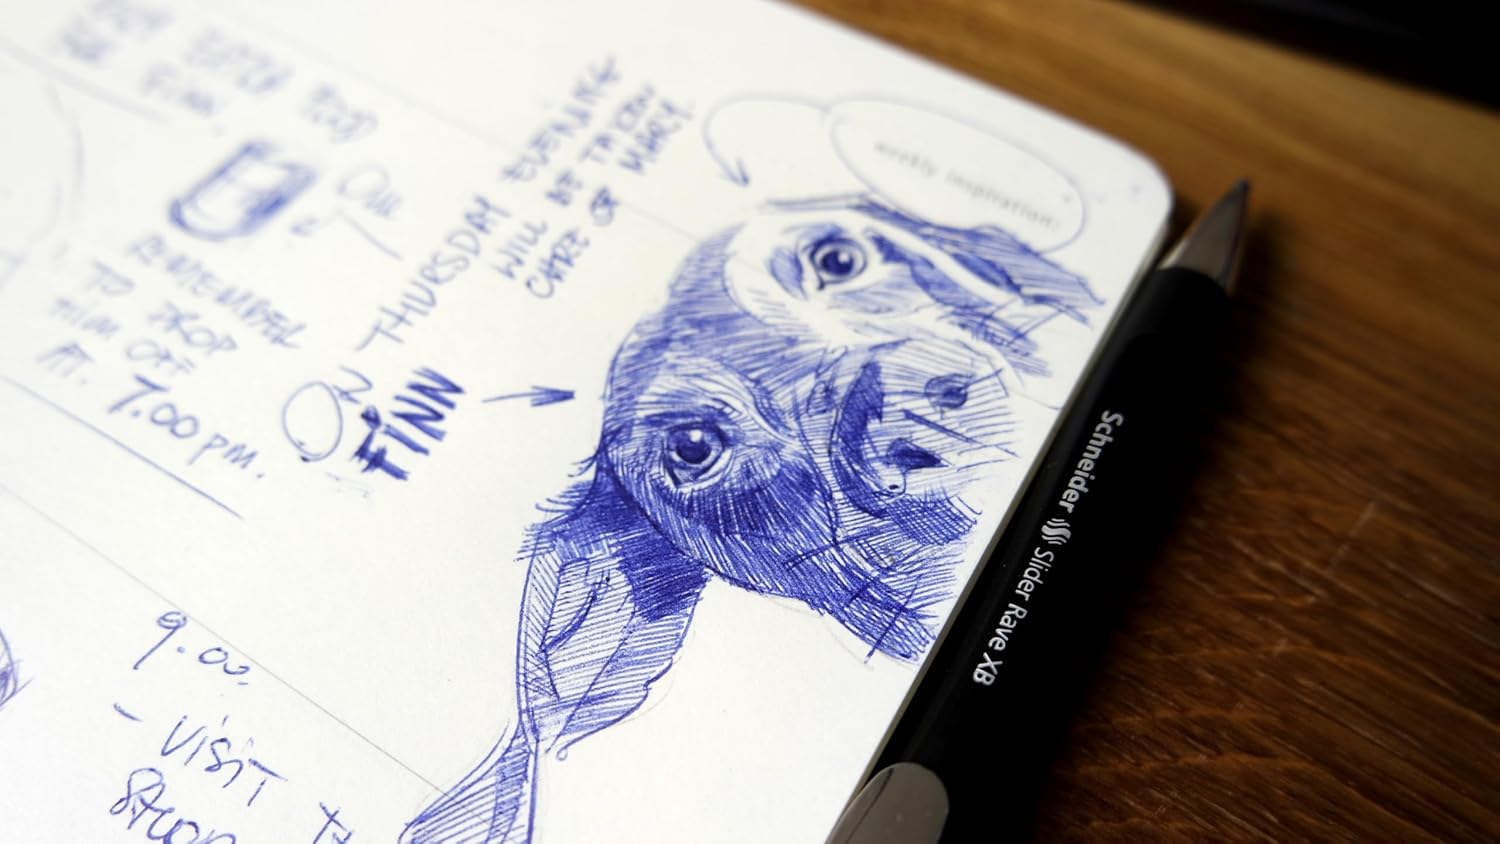 FINN.
REMEMBER
TO DROP
HIM OFF
AT. 7.00 pm.
ON THURSDAY EVENING
FINN
WILL BE TAKEN
CARE OF MARCY.
weekly inspiration:
9.00.
- VISIT
Schneider Slider Rave XB